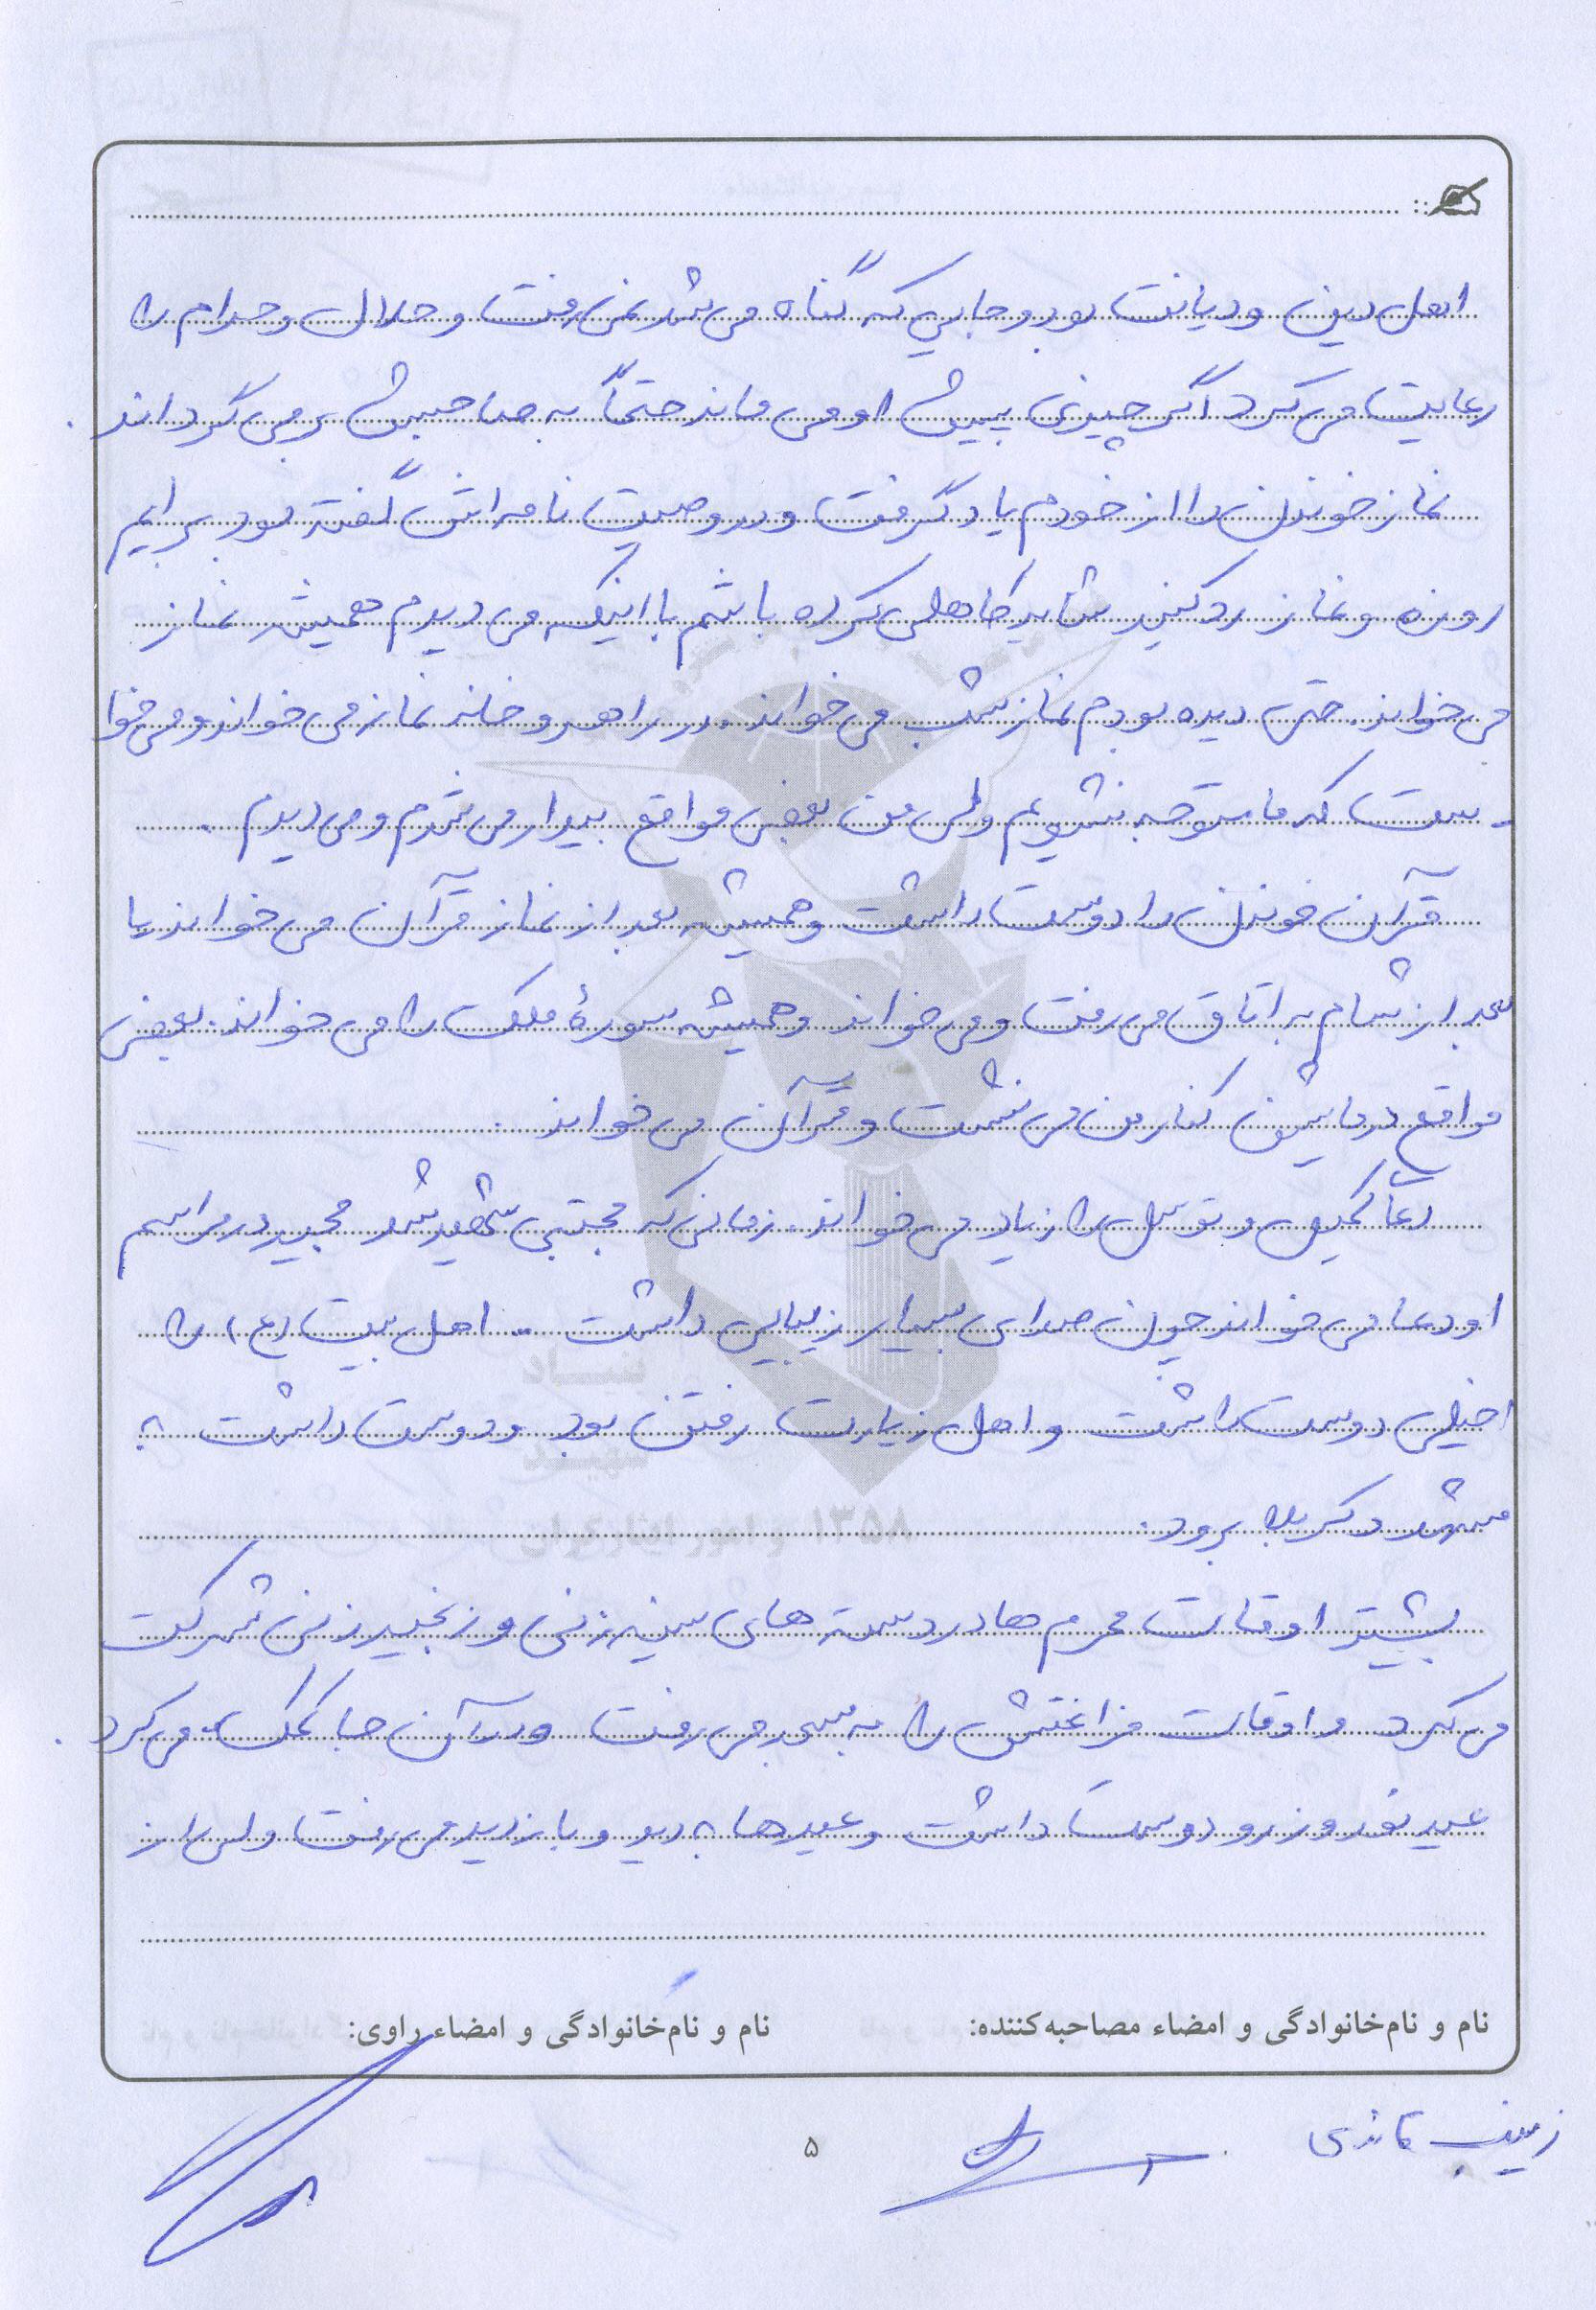 اهل دین و دیانت بود و جایی که گناه می شد نمی رفت و حلال و حرام را
رعایت می کرد اگر چیزی پیش او می ماند حتماً به صاحبش برمی گرداند.
نماز خوندن را از خودم یاد گرفت و در وصیت نامه اش گفته بود برایم
روزه و نماز رد کنید شاید کاهلی کرده باشم با اینکه می دیدم همیشه نماز
می خواند. حتی دیده بودم نماز شب می خواند. در راهرو خانه نماز می خواند و می خوا
ست که ما متوجه نشویم ولی من بعضی مواقع بیدار می شدم و می دیدم.
قرآن خوندن را دوست داشت و همیشه بعد از نماز قرآن می خواند یا
بعد از شام به اتاق می رفت و می خواند و همیشه سورهٔ ملک را می خواند. بعضی
مواقع در ماشین کنار من می نشست و قرآن می خواند.
دعا کمیل و توسل را زیاد می خواند. زمانی که مجتبی شهید شد مجید در مراسم
او دعا می خواند چون صدای بسیار زیبایی داشت .. اهل بیت (ع) را
خیلی دوست داشت و اهل زیارت رفتن بود و دوست داشت به
مشهد و کربلا برود.
بیشتر اوقات محرم ها در دسته های سینه زنی و زنجیر زنی شرکت
می کرد و اوقات فراغتش را به مسجد می رفت و در آن جا کمک می کرد.
عید نوروز رو دوست داشت و عیدها به دید و بازدید می رفت ولی از
نام و نام‌خانوادگی و امضاء مصاحبه‌کننده: نام و نام‌خانوادگی و امضاء راوی:
زینب
۵
بنیاد
شهید
و امور ایثارگران ۱۳۵۸